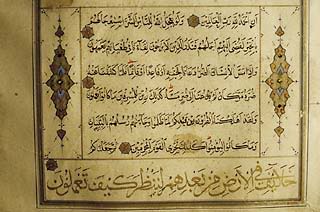 ان الحمد لله رب العالمين ولو يعجل الله للناس الشر استعجالهم
بالخير لقضي اليهم اجلهم فنذر الذين لا يرجون لقاءنا في طغيانهم يعمهون
واذا مس الانسان الضر دعانا لجنبه او قاعدا او قائما فلما كشفنا عنه
ضره مر كان لم يدعنا الى ضر مسه كذلك زين للمسرفين ما كانوا يعملون
ولقد اهلكنا القرون من قبلكم لما ظلموا وجاءتهم رسلهم بالبينات
وما كانوا ليؤمنوا كذلك نجزي القوم المجرمين ثم جعلناكم
خلائف في الارض من بعدهم لننظر كيف تعملون